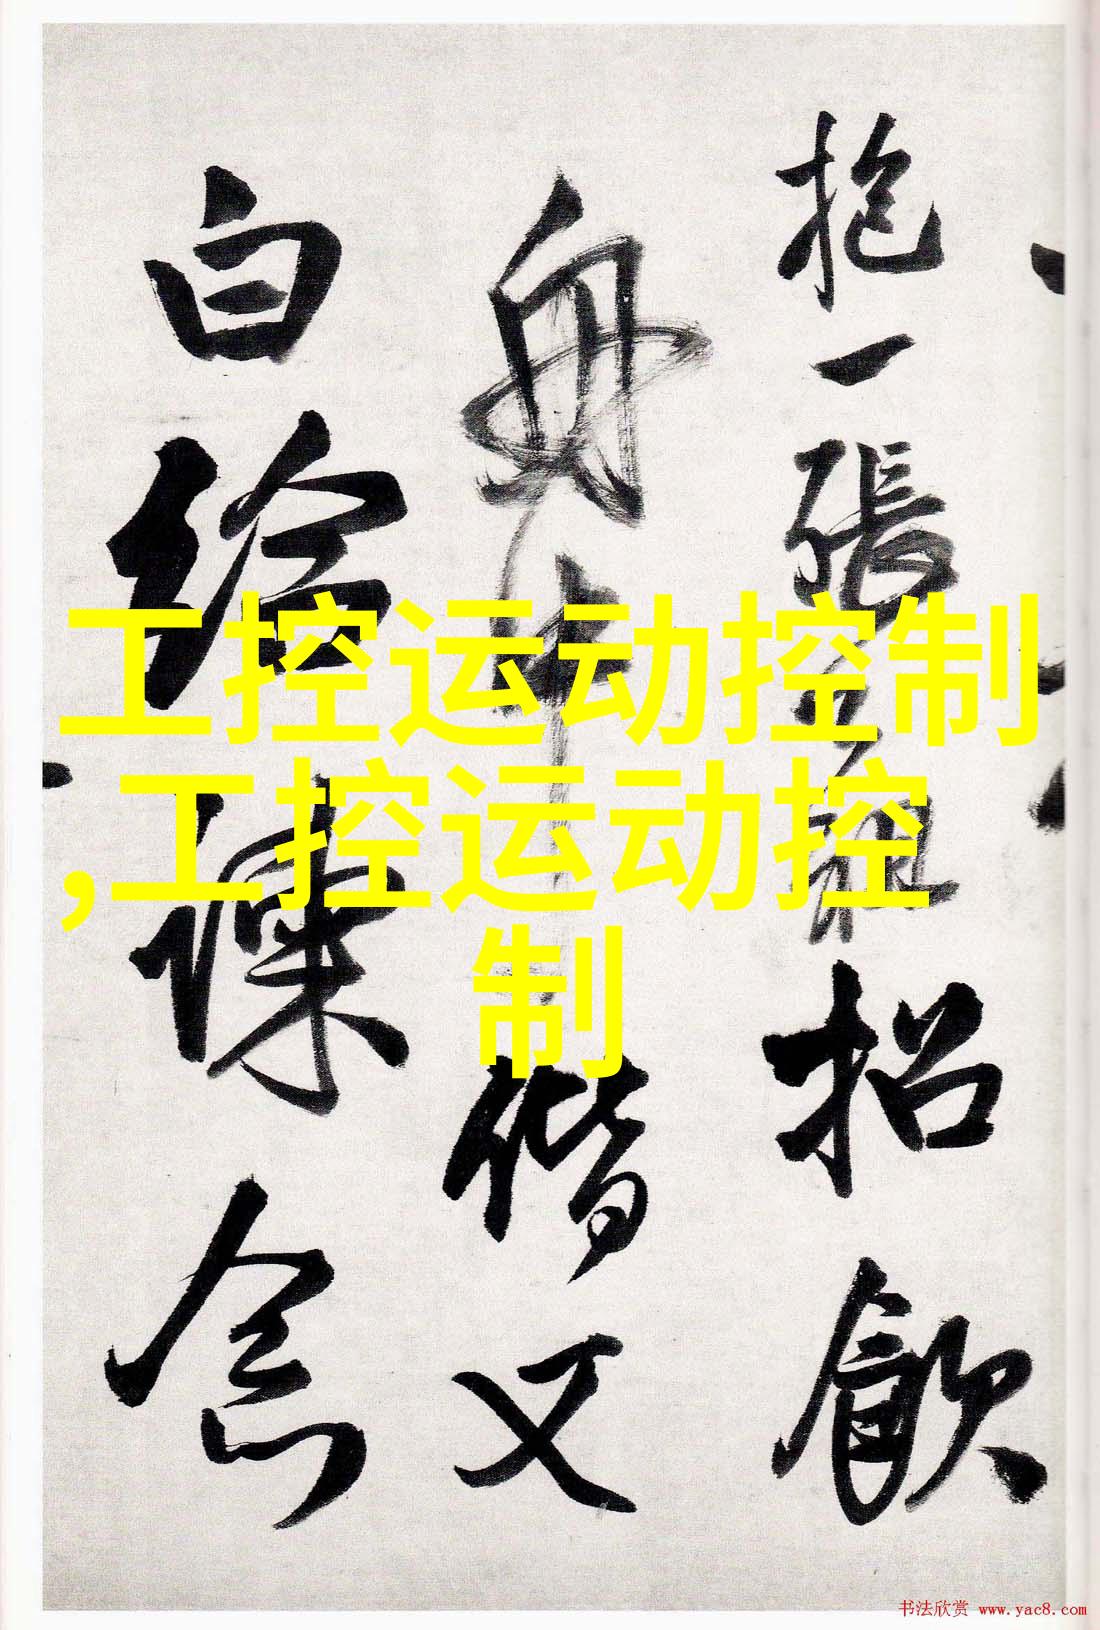 抱一張招飲
舟中偕又
白給諫念
工控运动控制
,工控运动控
制
书法欣赏 www.yac8.com